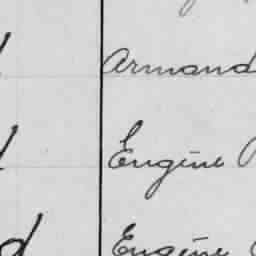 Armand
Eugène
Eugène